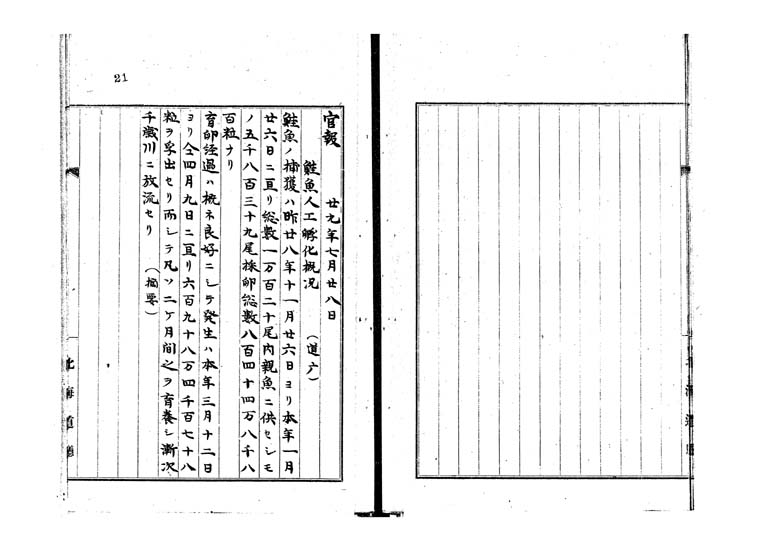 21
官報　廿九年七月廿八日
鮭魚人工孵化概况　（道庁）
鮭魚ノ捕獲ハ昨廿八年十一月廿六日ヨリ本年一月
廿六日ニ亘リ総数一万百二十尾内親魚ニ供セシモ
ノ五千八百三十九尾採卵総数八百四十四万八千八
百粒ナリ
育卵経過ハ概ネ良好ニシテ発生ハ本年三月十二日
ヨリ仝四月九日ニ亘リ六百九十八万四千百七十八
粒ヲ孚出セリ而シテ凡ソ二ケ月間之ヲ育養シ漸次
千歳川ニ放流セリ　（摘要）
北海道廳